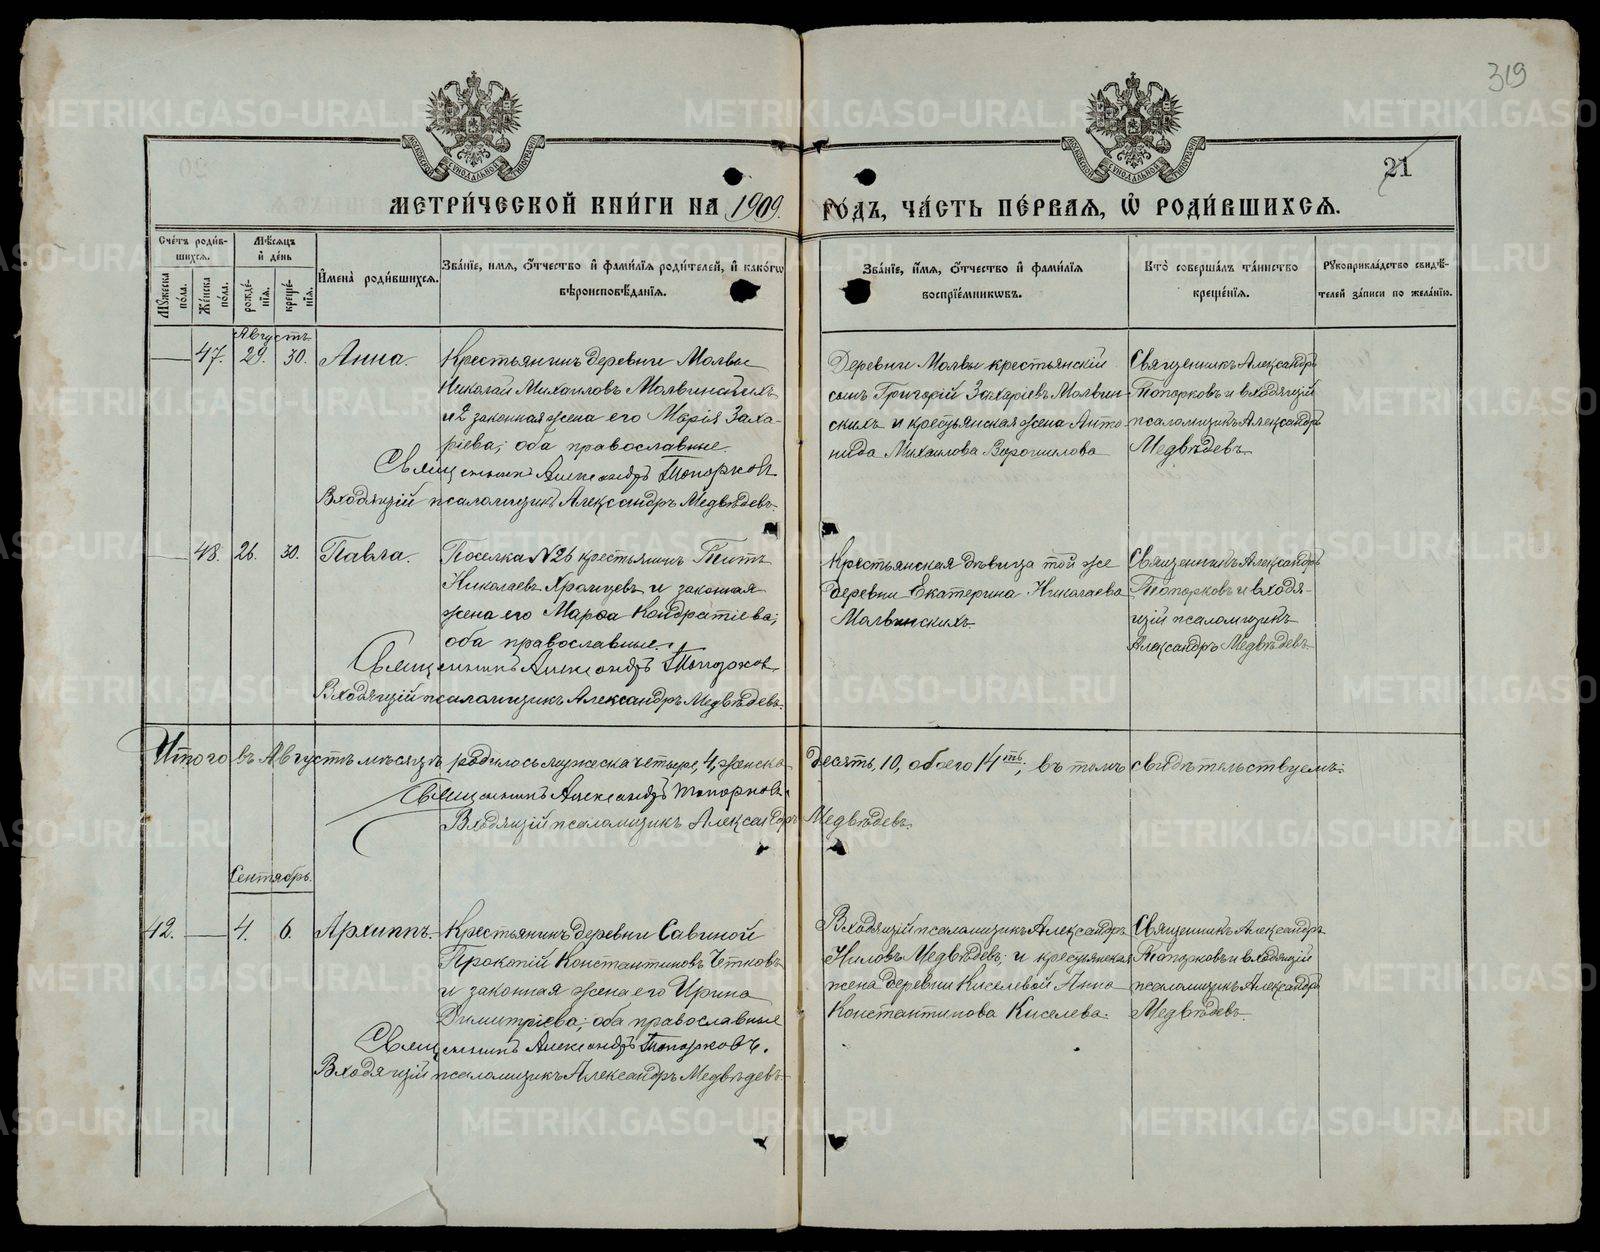 319
21
МЕТРИ́ЧЕСКОЙ КНИ́ГИ НА 1909 ГО́ДЪ, ЧА́СТЬ ПЕ́РВАЯ, Ѡ҆ РОДИ́ВШИХСѦ.
Сче́тъ роди́в-
шихсѧ.
Мꙋ́жеска
по́ла.
Же́нска
по́ла.
Мѣ́сѧцъ
и҆ де́нь
рожде́-
нїѧ.
креще́-
нїѧ.
И҆мена̀ роди́вшихсѧ.
Зва́нїе, и҆мѧ, ѻ҆́тчество и҆ фами́лїѧ роди́телей, и҆ како́гѡ
вѣроисповѣ́данїѧ.
Зва́нїе, и҆́мѧ, ѻ҆́тчество и҆ фами́лїѧ
воспрїе́мникѡвъ.
Кто̀ соверша́лъ та́инство
креще́нїѧ.
Рꙋкоприкла́дство свидѣ́-
телей за́писи по жела́нїю.
Августъ
47. 29. 30. Анна.
Крестьянинъ деревни Молвы
Николай Михаиловъ Молвинскихъ
и 2 законная жена его Марія Заха-
ріева; оба православные.
Священникъ Александръ Топорковъ
Входящій псаломщикъ Александръ Медвѣдевъ.
Деревни Молвы крестьянскій
сынъ Григорій Захаріевъ Молвин-
скихъ и крестьянская жена Анто-
нида Михаилова Ворошилова
Священникъ Александръ
Топорковъ и входящій
псаломщикъ Александръ
Медвѣдевъ.
48. 26. 30. Павла.
Поселка №26 крестьянинъ Титъ
Николаевъ Хромцевъ и законная
жена его Марѳа Кондратіева;
оба православные.
Священникъ Александръ Топорков
Входящій псаломщикъ Александръ Медвѣдевъ.
Крестьянская дѣвица той же
деревни Екатерина Николаева
Молвинскихъ.
Священникъ Александръ
Топорковъ и входя-
щій псаломщикъ
Александръ Медвѣдевъ.
Итого въ Августѣ мѣсяцѣ родилось мужеска четыре, 4, женска десять, 10, обоего 14ть; въ томъ свидѣтельствуемъ:
Священникъ Александръ Топорковъ.
Входящій псаломщикъ Александръ Медвѣдевъ.
Сентябрь.
42. 4. 6. Архиппъ.
Крестьянинъ деревни Савиной
Прокопій Константиновъ Утковъ
и законная жена его Ирина
Димитріева; оба православные
Священникъ Александръ Топорковъ.
Входящій псаломщикъ Александръ Медвѣдевъ.
Входящій псаломщикъ Александръ
Ниловъ Медвѣдевъ; и крестьянская
жена деревни Киселевой Анна
Константинова Киселева.
Священникъ Александръ
Топорковъ и входящій
псаломщикъ Александръ
Медвѣдевъ.
METRIKI.GASO-URAL.RU